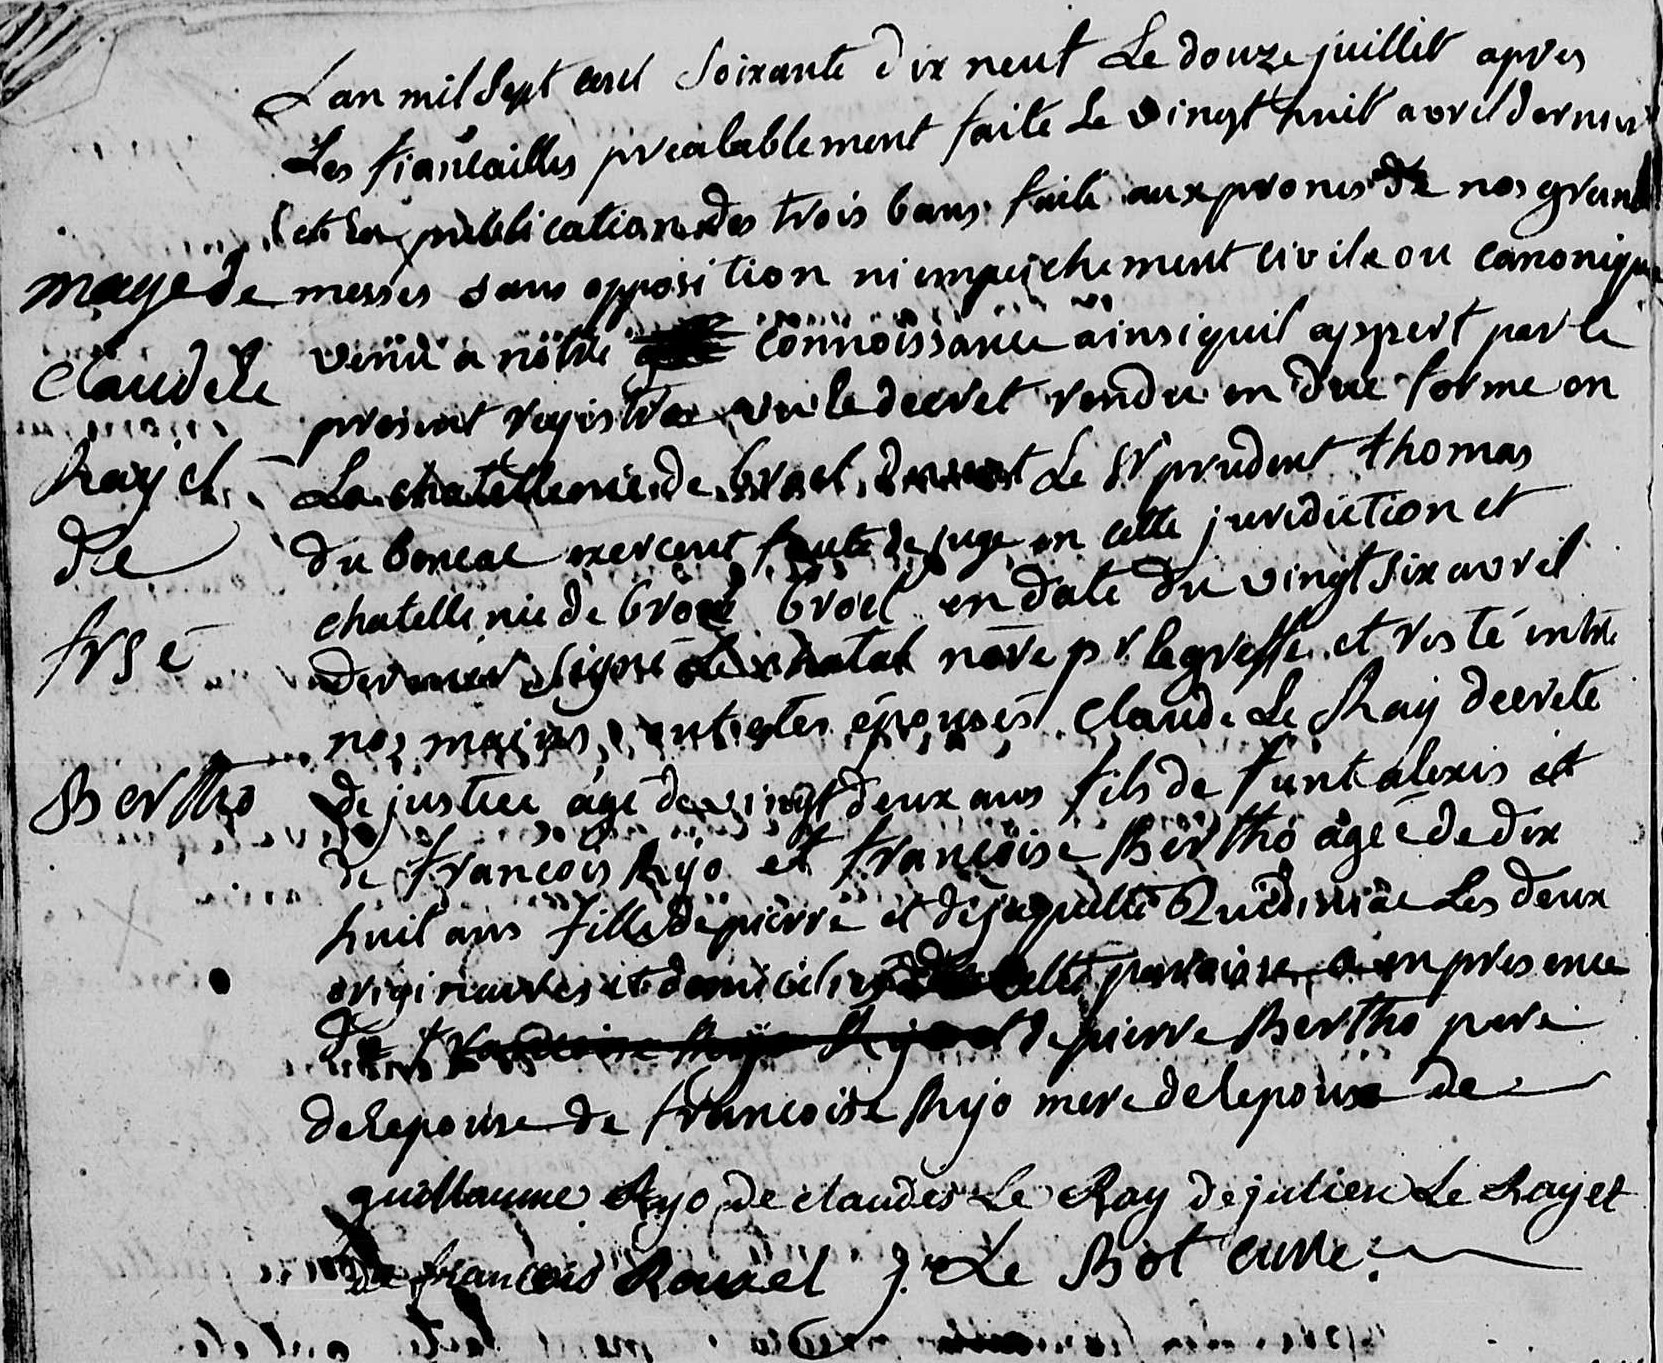 Lan mil Sept cent Soixante dix neuf Le douze juillet apres
Les fiancailles prealablement faite Le vingt huit avril dernier
et La publication des trois bans faite aux prones de nos grand
messes sans opposition ni empeichement civile ou canonique
venu a notre connoissance ainsi quil appert par le
present registre vu le decret rendu en due forme en
La chatellenie de broel devant Le Sr prudent thomas
du boncac exercent faute de juge en cette juridiction et
chatellenie de broel en date du vingt six avril
dernier Signé nore pr le greffe et resté entre
nos mains, ont estes épousés Claude Le Ray decreté
de justice agé de vingt deux ans fils de funt alexis et
de francois Ryo et francoise Bertho agée de dix
huit ans fille de pierre et de jaquette Quedinac Les deux
originaires et domiciliés de cette paroisse en presence
de pierre Bertho pere
de lepouse de francoise Ryo mere de lepoux de
guillaume Ryo de claudes Le Ray de julien Le Ray et
de francois Rouxel J. Le Bot curé
mage de
Claude le
Ray et
de
frse
Bertho